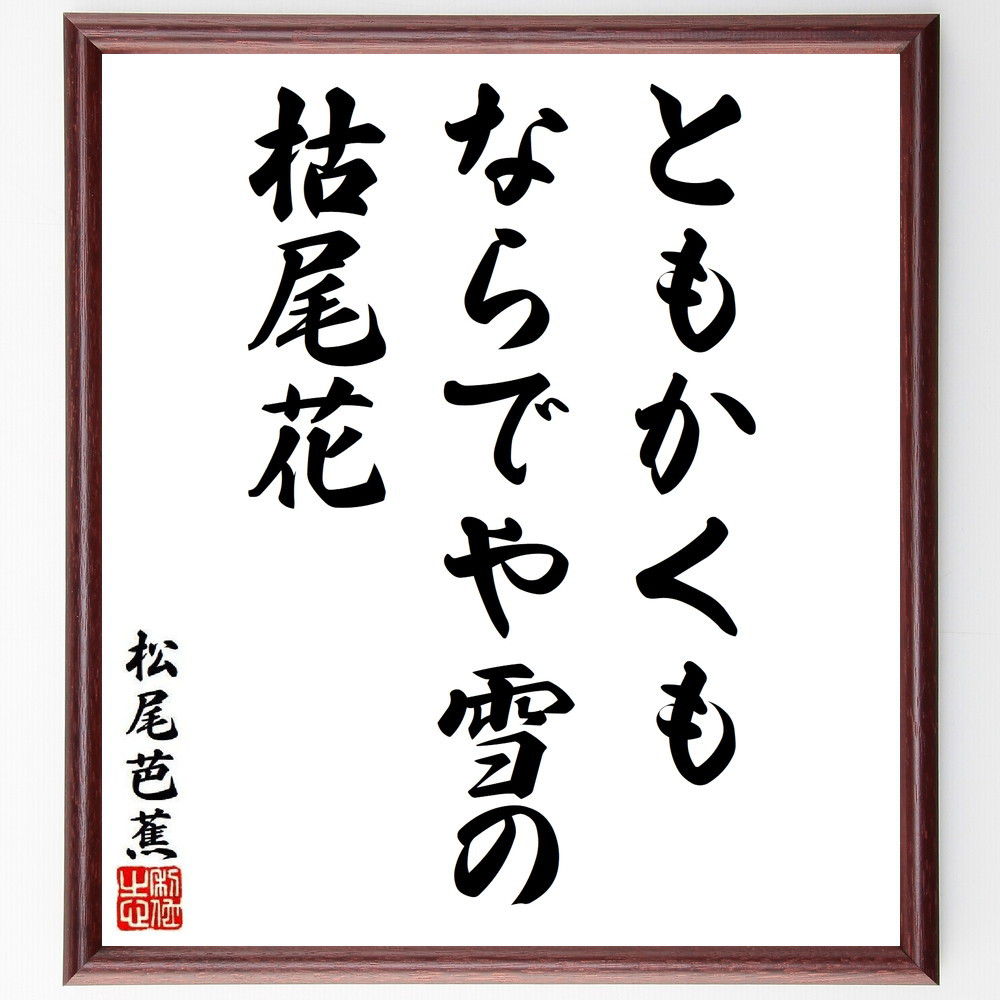 ともかくも
ならでや雪の
枯尾花
松尾芭蕉